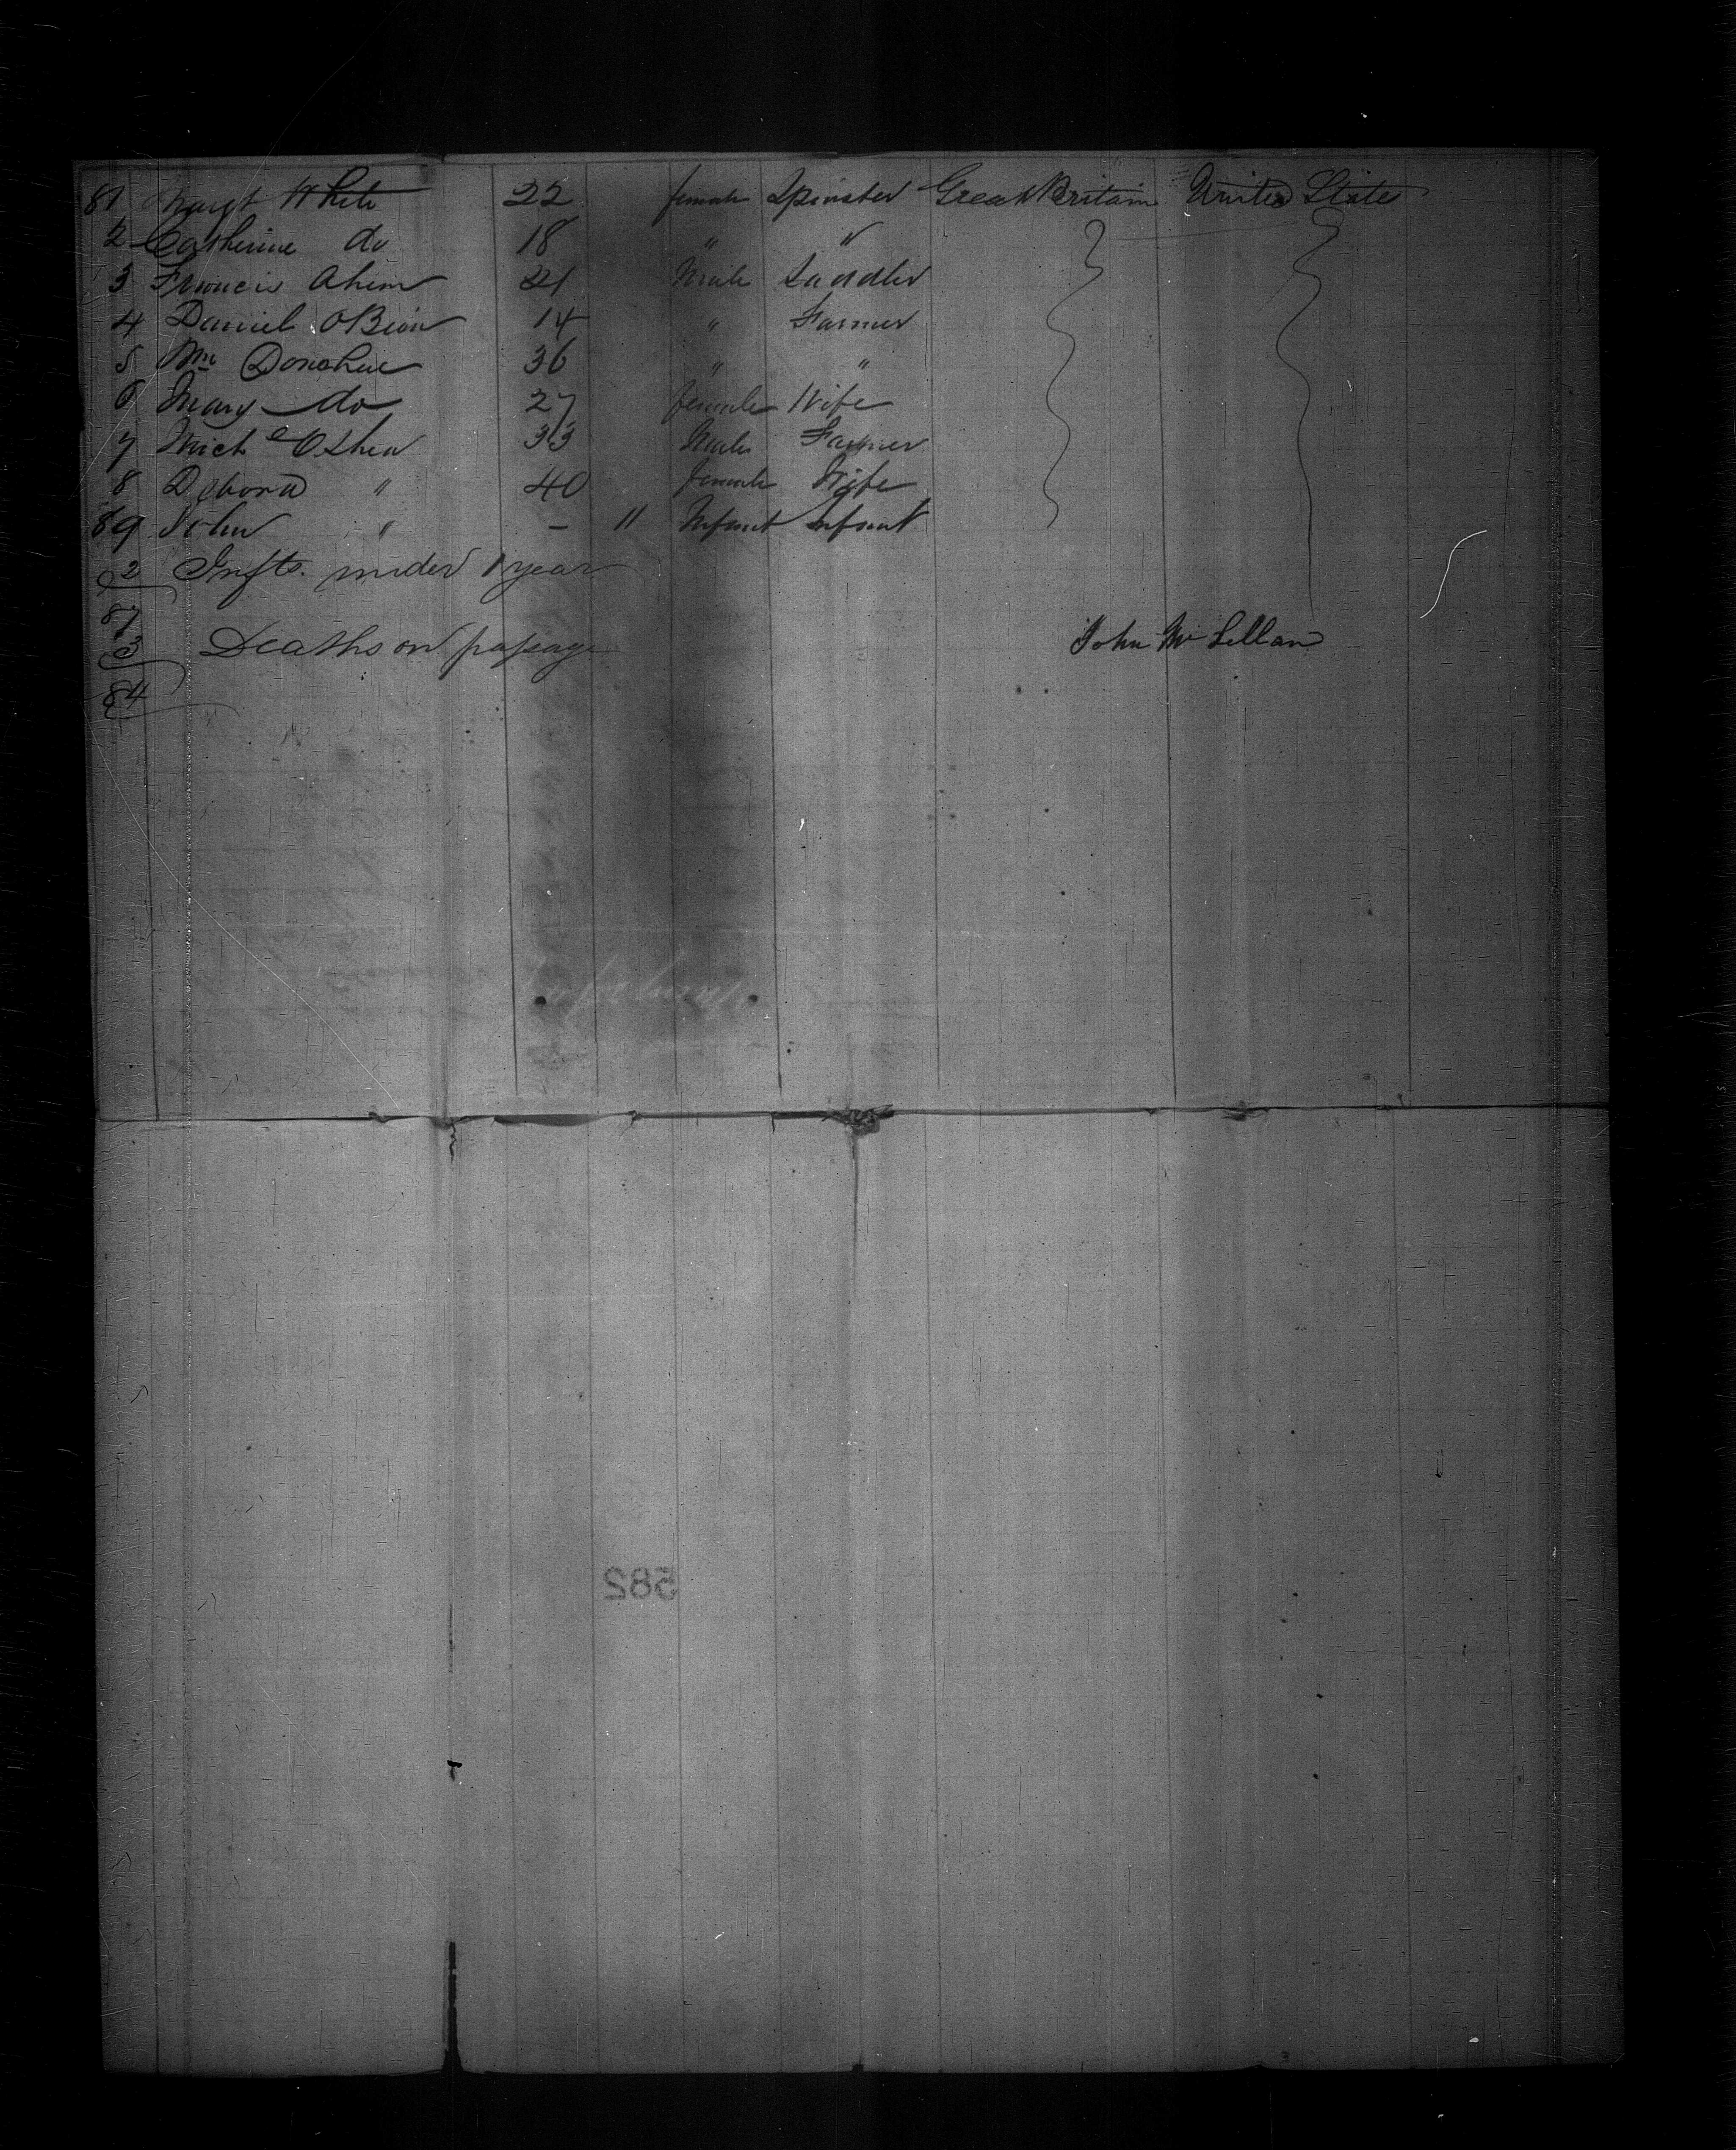 81 Margt White 22 female Spinster Great Britain United States
2 Catherine do 18 " "
3 Francis Ahern 21 Male Saddler
4 Daniel OBrien 14 " Farmer
5 Wm Donohue 36 " "
6 Mary do 27 female Wife
7 Mich OShea 33 Male Farmer
8 Debora " 40 female Wife
89 John " - 11 Infant Infant
2 Infts. under 1 year
87
3 Deaths on passage John McLellan
84
582